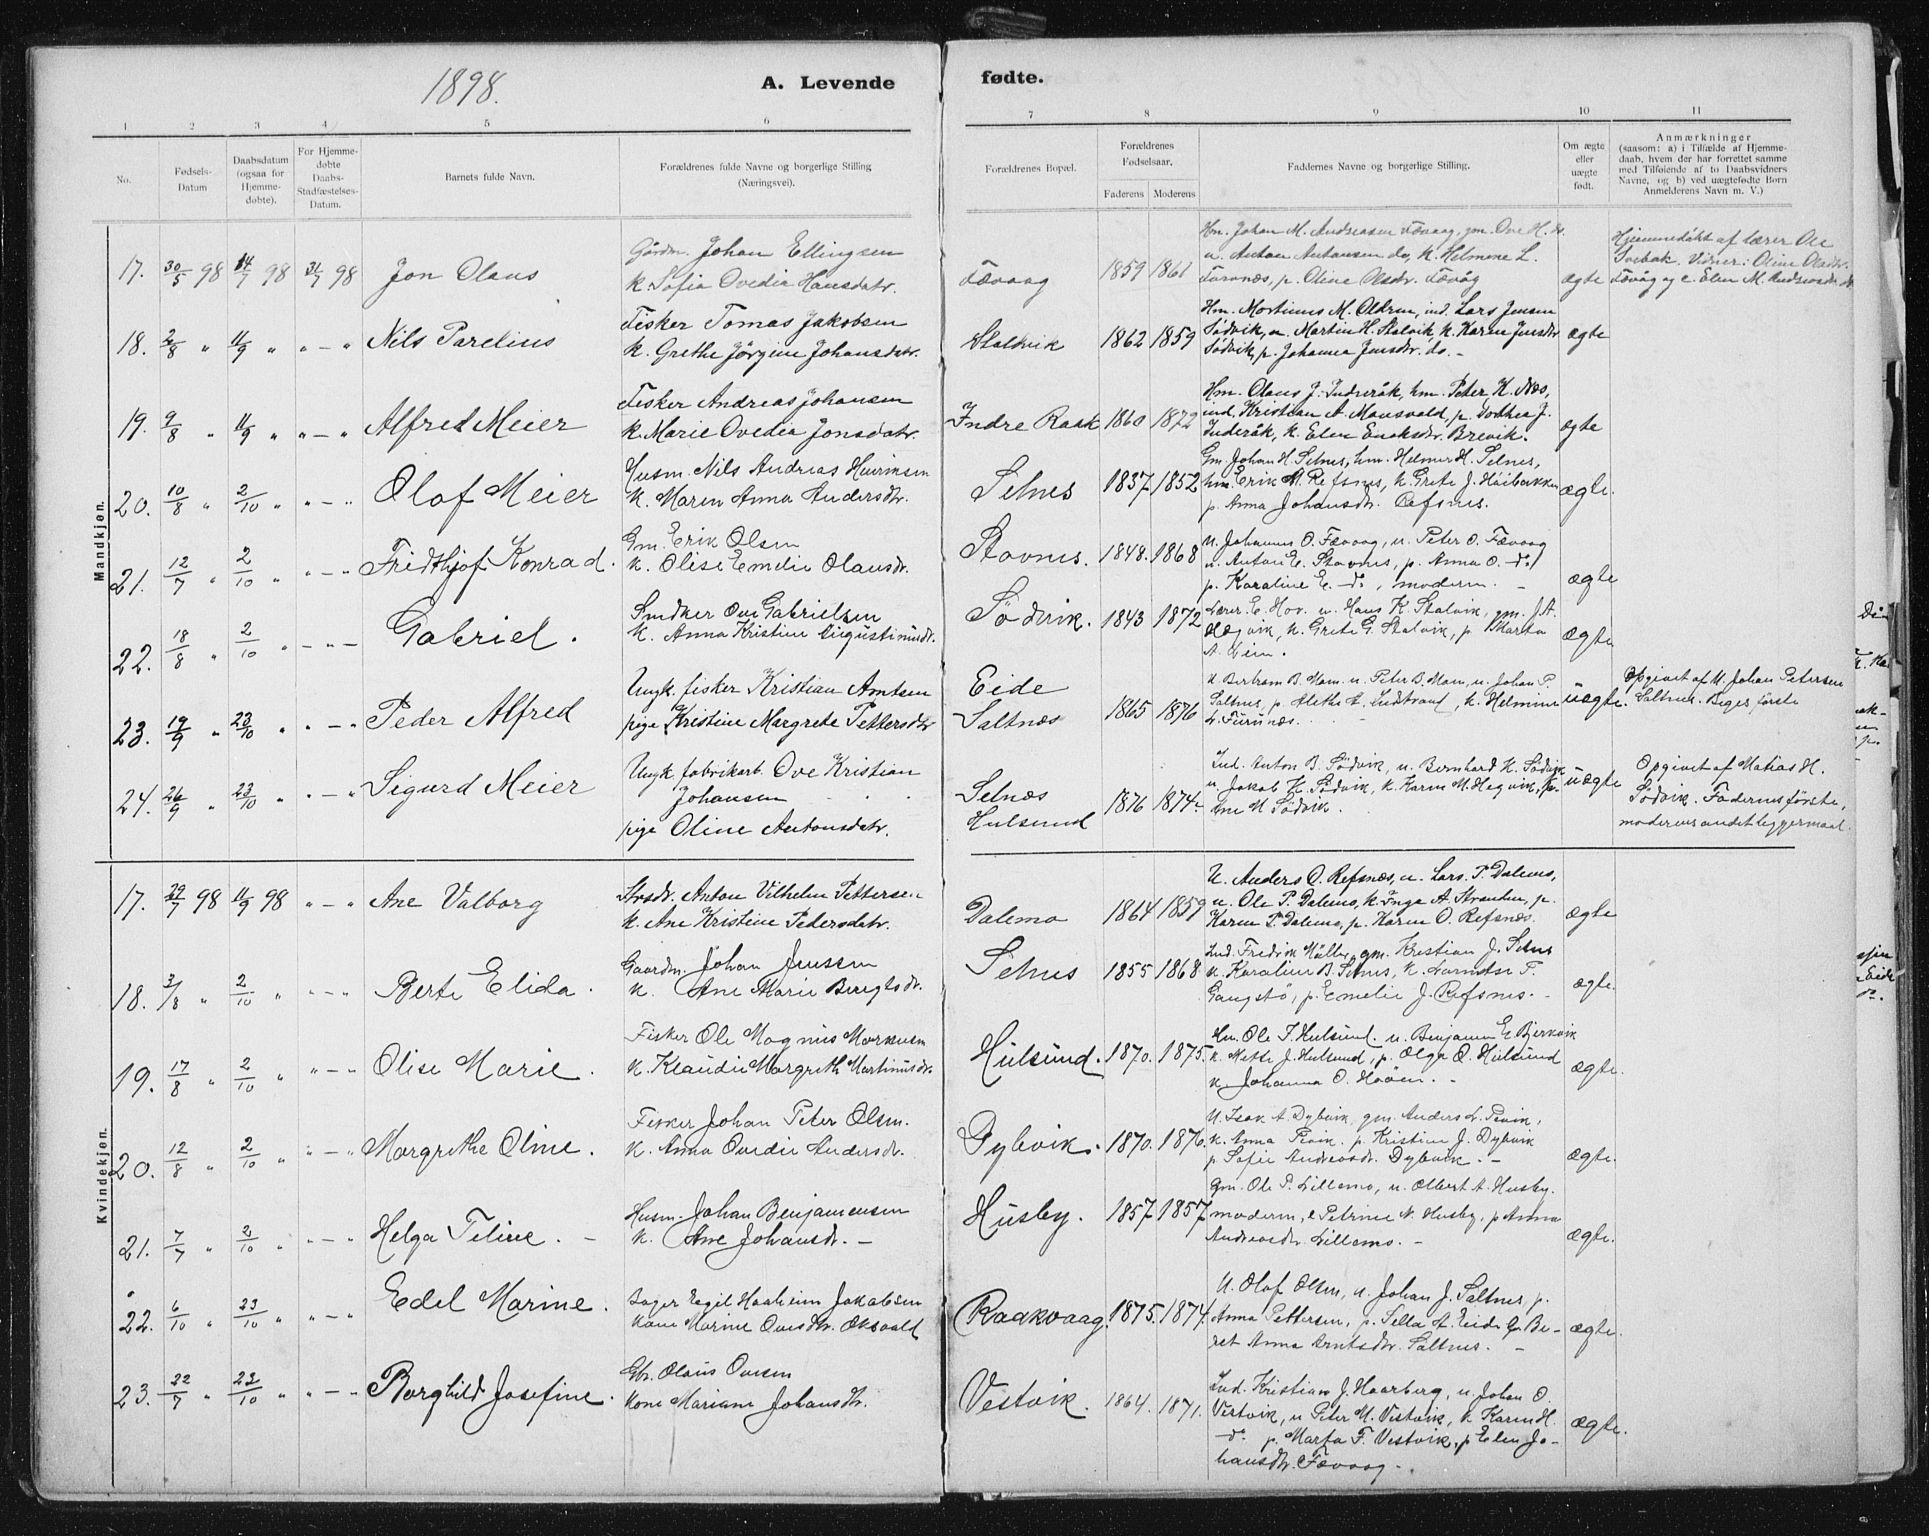 1898.
A. Levende
fødte.
1 2 3 4 5 6 7 8 9 10 11
No.
Fødsels-
Datum
Daabsdatum
(ogsaa for
Hjemme-
døbte).
For Hjemme-
døbte
Daabs-
Stadfæstelses-
Datum.
Barnets fulde Navn.
Forældrenes fulde Navne og borgerlige Stilling
(Næringsvei).
Forældrenes Bopæl.
Forældrenes
Fødselsaar.
Faderens Moderens
Faddernes Navne og borgerlige Stilling.
Om ægte
eller
uægte
født.
Anmærkninger
(saasom: a) i Tilfælde af Hjemme-
daab, hvem der har forrettet samme
med Tilføiende af to Daabsvidners
Navne, og b) ved uægtefødte Børn
Anmelderens Navn m. V.)
Mandkjøn.
17. 30/5 98 14/7 98 31/7 98 Jon Olaus
Gårdm. Johan Ellingsen
k. Sofia Ovedia Hansdatr.
Fævaag 1859 1861
Hm. Johan M. Andreasen Fævaag, gm. Ove H. do.
u. Anton Antonsen do, k. Helmine L.
Furunæs, p. Oline Olsdr. Fævåg
ægte
Hjemmedøbt af lærer Ole
Svebak. Vidner: Oline Olsdtr.
Fævåg og e. Elen M. Andreasdr. do
18. 2/8 " 11/9 " " - " Nils Parelius
Fisker Tomas Jakobsen
k. Grethe Jörgine Johansdatr.
Stallvik 1862 1859
Hm. Mortinus M. Oldren, ind. Lars Jensen
Södvik, u. Martin H. Stalvik k. Karen Jensdr
Södvik, p. Johanna Jensdr. do. -
ægte
19. 9/8 " 11/9 " " - " Alfred Meier
Fisker Andreas Johansen
k. Marie Ovedia Jonsdatr.
Indre Raak 1860 1872
Hm. Olaus J. Inderåk, hm. Peter K. Næs,
ind. Kristian A. Mausvald, p. Dorthea J.
Inderåk, k. Elen Eriksdr. Brevik.
ægte
20. 10/8 " 2/10 " - " Olaf Meier
Husm. Nils Andreas Henriksen
k. Maren Anna Andersdtr.
Selnes 1837. 1852
Gm. Johan H. Selnes, hm. Helmer H. Selnes,
hm. Erik A. Refsnes, k. Grete J. Höibakken
p. Anna Johansdr. Refsnes.
ægte.
21. 12/7 " 2/10 " " - " Fridthjof Konrad.
Gm. Erik Olsen
k. Olise Emilie Olausdr.
Stovnes. 1848. 1868
u. Johannes O. Fævaag, u. Peter O. Fævaag
u. Anton E. Stovnes, p. Anna O. do
p. Karaline E. do, modern. -
ægte
22. 18/8 " 2/10 " " - " Gabriel.
Smdker Ove Gabrielsen
k. Anna Kristine Augustinusdr.
Södvik. 1843 1872
Lærer E. Hov. u. Hans K Stalvik, gm. J. A.
Hegvik, k. Grete G. Stalvik, p Marta
A. Lein.
ægte
23. 19/9 " 23/10 " " - " Peder Alfred
Ungk. fisker Kristian Arntsen
pige Kristine Margrete Pettersdtr
Eide
Saltnæs 1865 1876
u Bertram B. Mam. u. Peter B. Mam, u. Johan P.
Saltnes, p. Alethe A. Sundstrand, k. Helmine
L. Furunæs.
uægte.
Opgivet af U. Johan Petersen
Saltnes. Beges første
24. 26/9 " 23/10 " " - " Sigurd Meier
Ungk. fabrikarb. Ove Kristian
Johansen
pige Oline Antonsdatr.
Selnæs
Hulsund 1876 1874
Ind. Anton B. Södvik, u. Bernhard K. Södvik
u Jakob H. Södvik, k. Karen M. Hegvik, k.
hne M Södvik.
uægte
Opgivet af Matias H.
Södvik. Faderens første,
moderens andet leggermaal.
Kvindekjøn.
17. 29/7 98 11/9 98 " - " Ane Valborg
Strsdr. Anton Vilhelm Pettersen
k. Ane Kristine Pedersdatr.
Dalemo 1864 1859
U. Anders O. Refsnæs, u. Lars P. Dalemo,
u. Ole P. Dalemo, k. Inga A. Stranden, p.
Karen P. Dalemo, p. Karen O. Refsnæs.
ægte
18. 3/8 " 2/10 " " - " Berte Elida.
Gaardm. Johan Jenssen
k. Ane Marie Bengtsdr.
Selnes 1855 1868
Ind. Fredrik Müller, gm. Kristian J. Selnes
k. Karoline B. Selnes, k. Lorntse F.
Gangstö, p. Emelie J. Refsnes. -
ægte.
19. 17/8 " 2/10 " " - " Olise Marie.
Fisker Ole Magnus Markusen
k. Klaudie Margreth Martinusdr.
Hulsund. 1870. 1875.
Hm. Ole T. Hulsund. u. Benjamin E. Bjerkvik
k. Mette J. Hulsund, p. Olga O. Hulsund
k. Johanna O. Haöen. -
ægte.
20. 12/8 " 2/10 " " - " Margrethe Oline.
Fisker Johan Peter Olsen.
k. Anna Ovedie Andersdr.
Dybvik. 1870. 1876.
U. Isak A Dybvik, gm. Anders L. Revik,
k. Anna Revik. p. Kristine J. Dybvik
p Sofie Andreasdr. Dybvik. -
ægte.
21. 7/7 " 2/10 " " - " Helga Feline. -
Husm. Johan Benjamensen
k. Ane Johansdr. -
Husby. 1857 1857
gm. Ole P. Lillemo, u. Albert A. Husby.
modern, e Petrine N. Husby, p Anna
Andreasdtr. Lillemo. -
ægte.
22. 6/10 " 23/10 " " - " Edel Marine.
Bager Egil Haaheim Jakobsen
kone Marine Ovesdtr. Oksvold
Raakvaag. 1875. 1874.
U. Olaf Olsen, u. Johan J. Saltnes, p.
Anna Pettersen, p. Sella A. Eide & Be-
ret Anna Arntsdtr. Saltnes. -
ægte.
23. 22/7 " 23/10 " " - " Borghild Josefine.
Gbr. Olaus Ovesen
kone Mariane Johansdtr.
Vestvik. 1864. 1871.
Ind. Kristian J. Haarberg, u. Johan O.
Vestvik, u Peter M. Vestvik, k Karen H.
do p. Marta F. Vestvik, p Elen Jo-
hansdtr. Fævaag -
ægte.